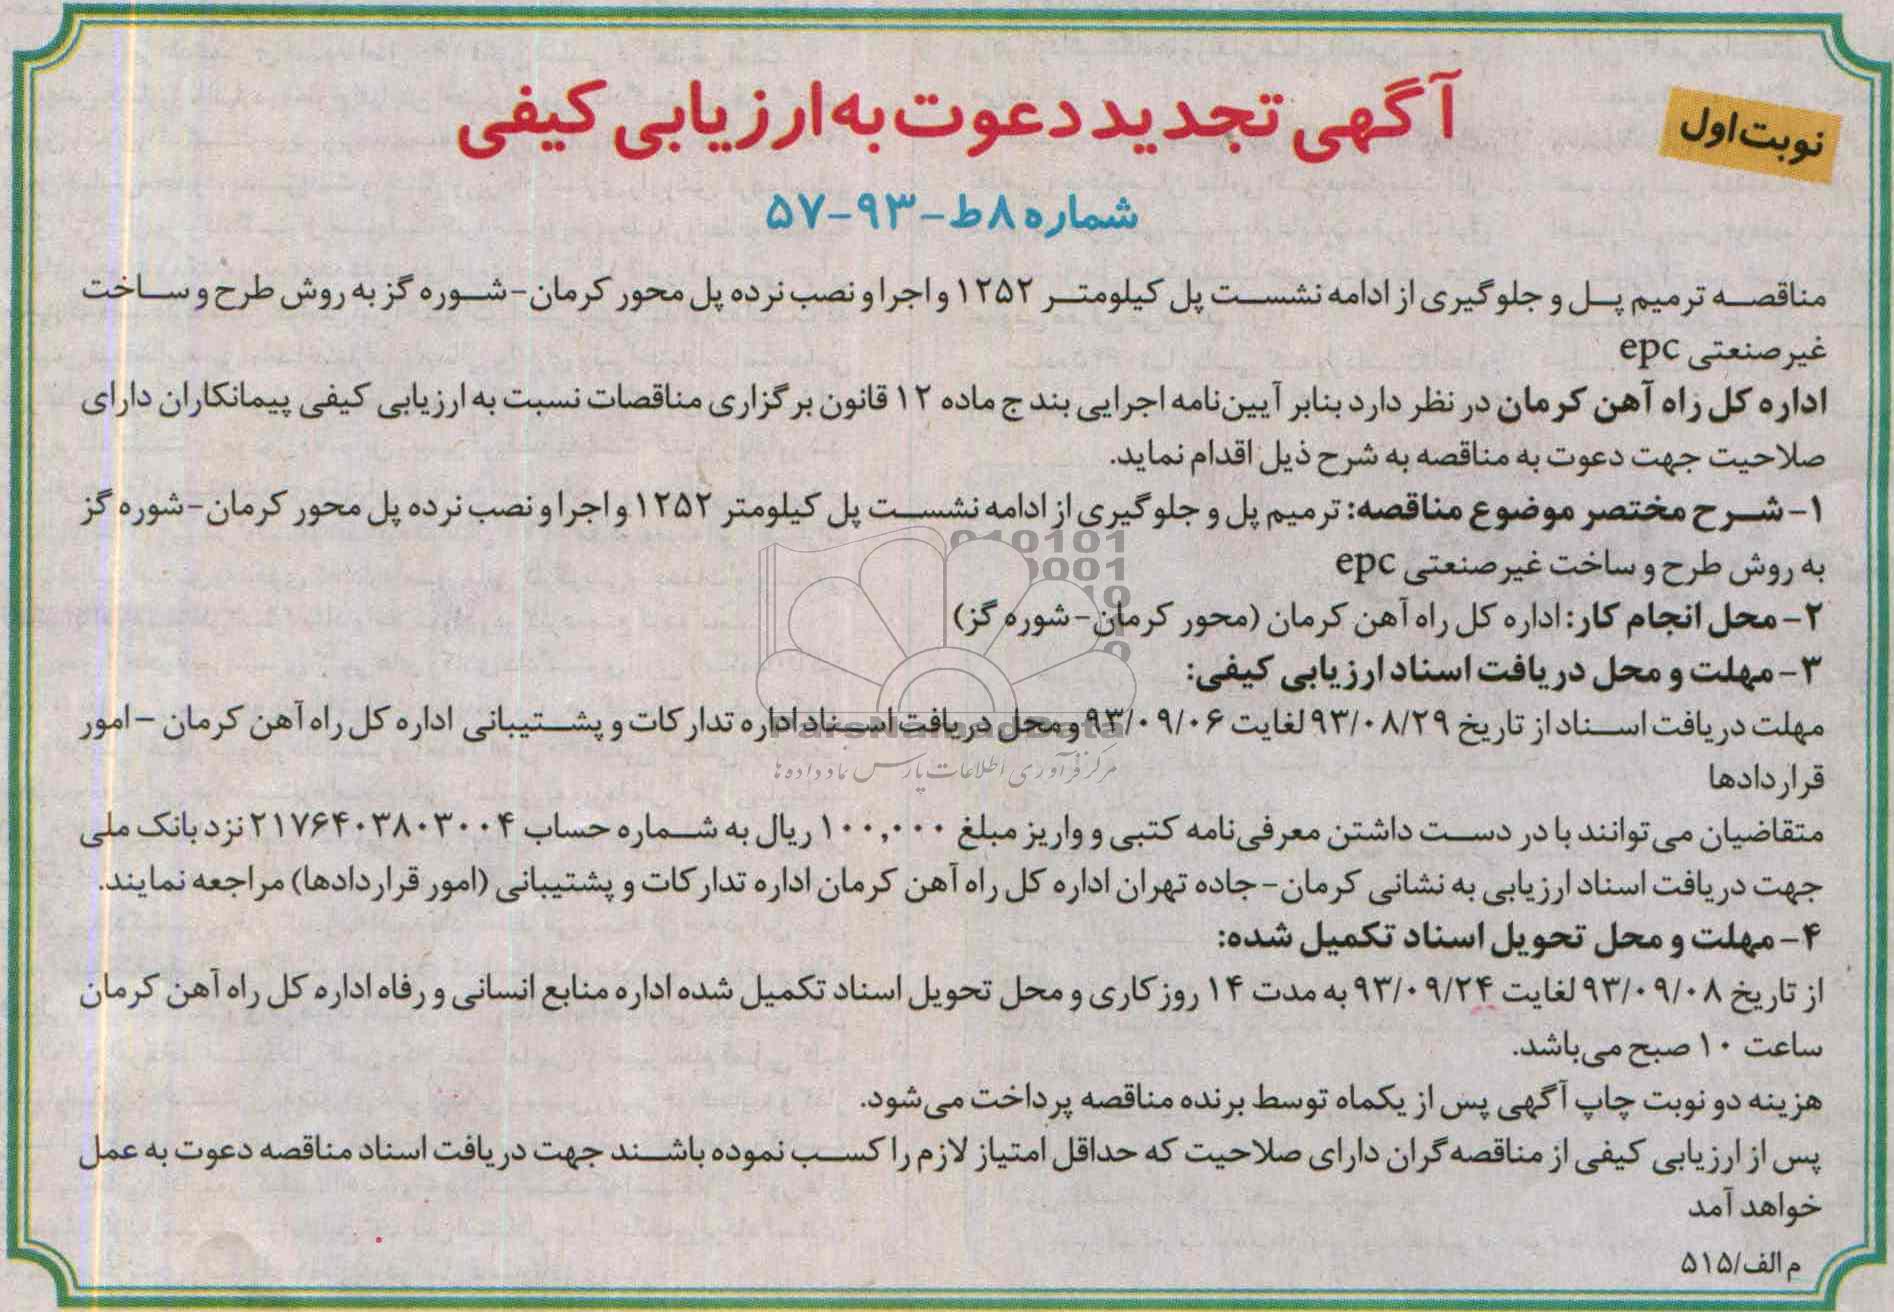 نوبت اول
آگهی تجدید دعوت به ارزیابی کیفی
شماره ۸ط-۹۳-۵۷
مناقصه ترمیم پل و جلوگیری از ادامه نشست پل کیلومتر ۱۲۵۲ و اجرا و نصب نرده پل محور کرمان-شوره گز به روش طرح و ساخت
غیرصنعتی epc
اداره کل راه آهن کرمان در نظر دارد بنابر آیین‌نامه اجرایی بند ج ماده ۱۲ قانون برگزاری مناقصات نسبت به ارزیابی کیفی پیمانکاران دارای
صلاحیت جهت دعوت به مناقصه به شرح ذیل اقدام نماید.
۱- شرح مختصر موضوع مناقصه: ترمیم پل و جلوگیری از ادامه نشست پل کیلومتر ۱۲۵۲ و اجرا و نصب نرده پل محور کرمان-شوره گز
به روش طرح و ساخت غیرصنعتی epc
۲- محل انجام کار: اداره کل راه آهن کرمان (محور کرمان-شوره گز)
۳- مهلت و محل دریافت اسناد ارزیابی کیفی:
مهلت دریافت اسناد از تاریخ ۹۳/۰۸/۲۹ لغایت ۹۳/۰۹/۰۶ و محل دریافت اسناد اداره تدارکات و پشتیبانی اداره کل راه آهن کرمان – امور
قراردادها
متقاضیان می‌توانند با در دست داشتن معرفی‌نامه کتبی و واریز مبلغ ۱۰۰,۰۰۰ ریال به شماره حساب ۲۱۷۶۴۰۳۸۰۳۰۰۴ نزد بانک ملی
جهت دریافت اسناد ارزیابی به نشانی کرمان-جاده تهران اداره کل راه آهن کرمان اداره تدارکات و پشتیبانی (امور قراردادها) مراجعه نمایند.
۴- مهلت و محل تحویل اسناد تکمیل شده:
از تاریخ ۹۳/۰۹/۰۸ لغایت ۹۳/۰۹/۲۴ به مدت ۱۴ روز کاری و محل تحویل اسناد تکمیل شده اداره منابع انسانی و رفاه اداره کل راه آهن کرمان
ساعت ۱۰ صبح می‌باشد.
هزینه دو نوبت چاپ آگهی پس از یکماه توسط برنده مناقصه پرداخت می‌شود.
پس از ارزیابی کیفی از مناقصه‌گران دارای صلاحیت که حداقل امتیاز لازم را کسب نموده باشند جهت دریافت اسناد مناقصه دعوت به عمل
خواهد آمد
م الف/۵۱۵